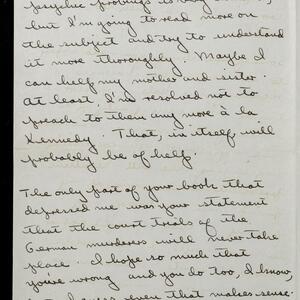 psychic probings is very
but I'm going to read more on
the subject and try to understand
it more thoroughly. Maybe I
can help my mother and sister.
At least, I'm resolved not to
preach to them any more à la
Kennedy. That, in itself, will
probably be of help.
The only part of your book that
depressed me was your statement
that the court trials of the
German murderers will never take
place. I hope so much that
you're wrong and you do too, I know,
even that makes sense.